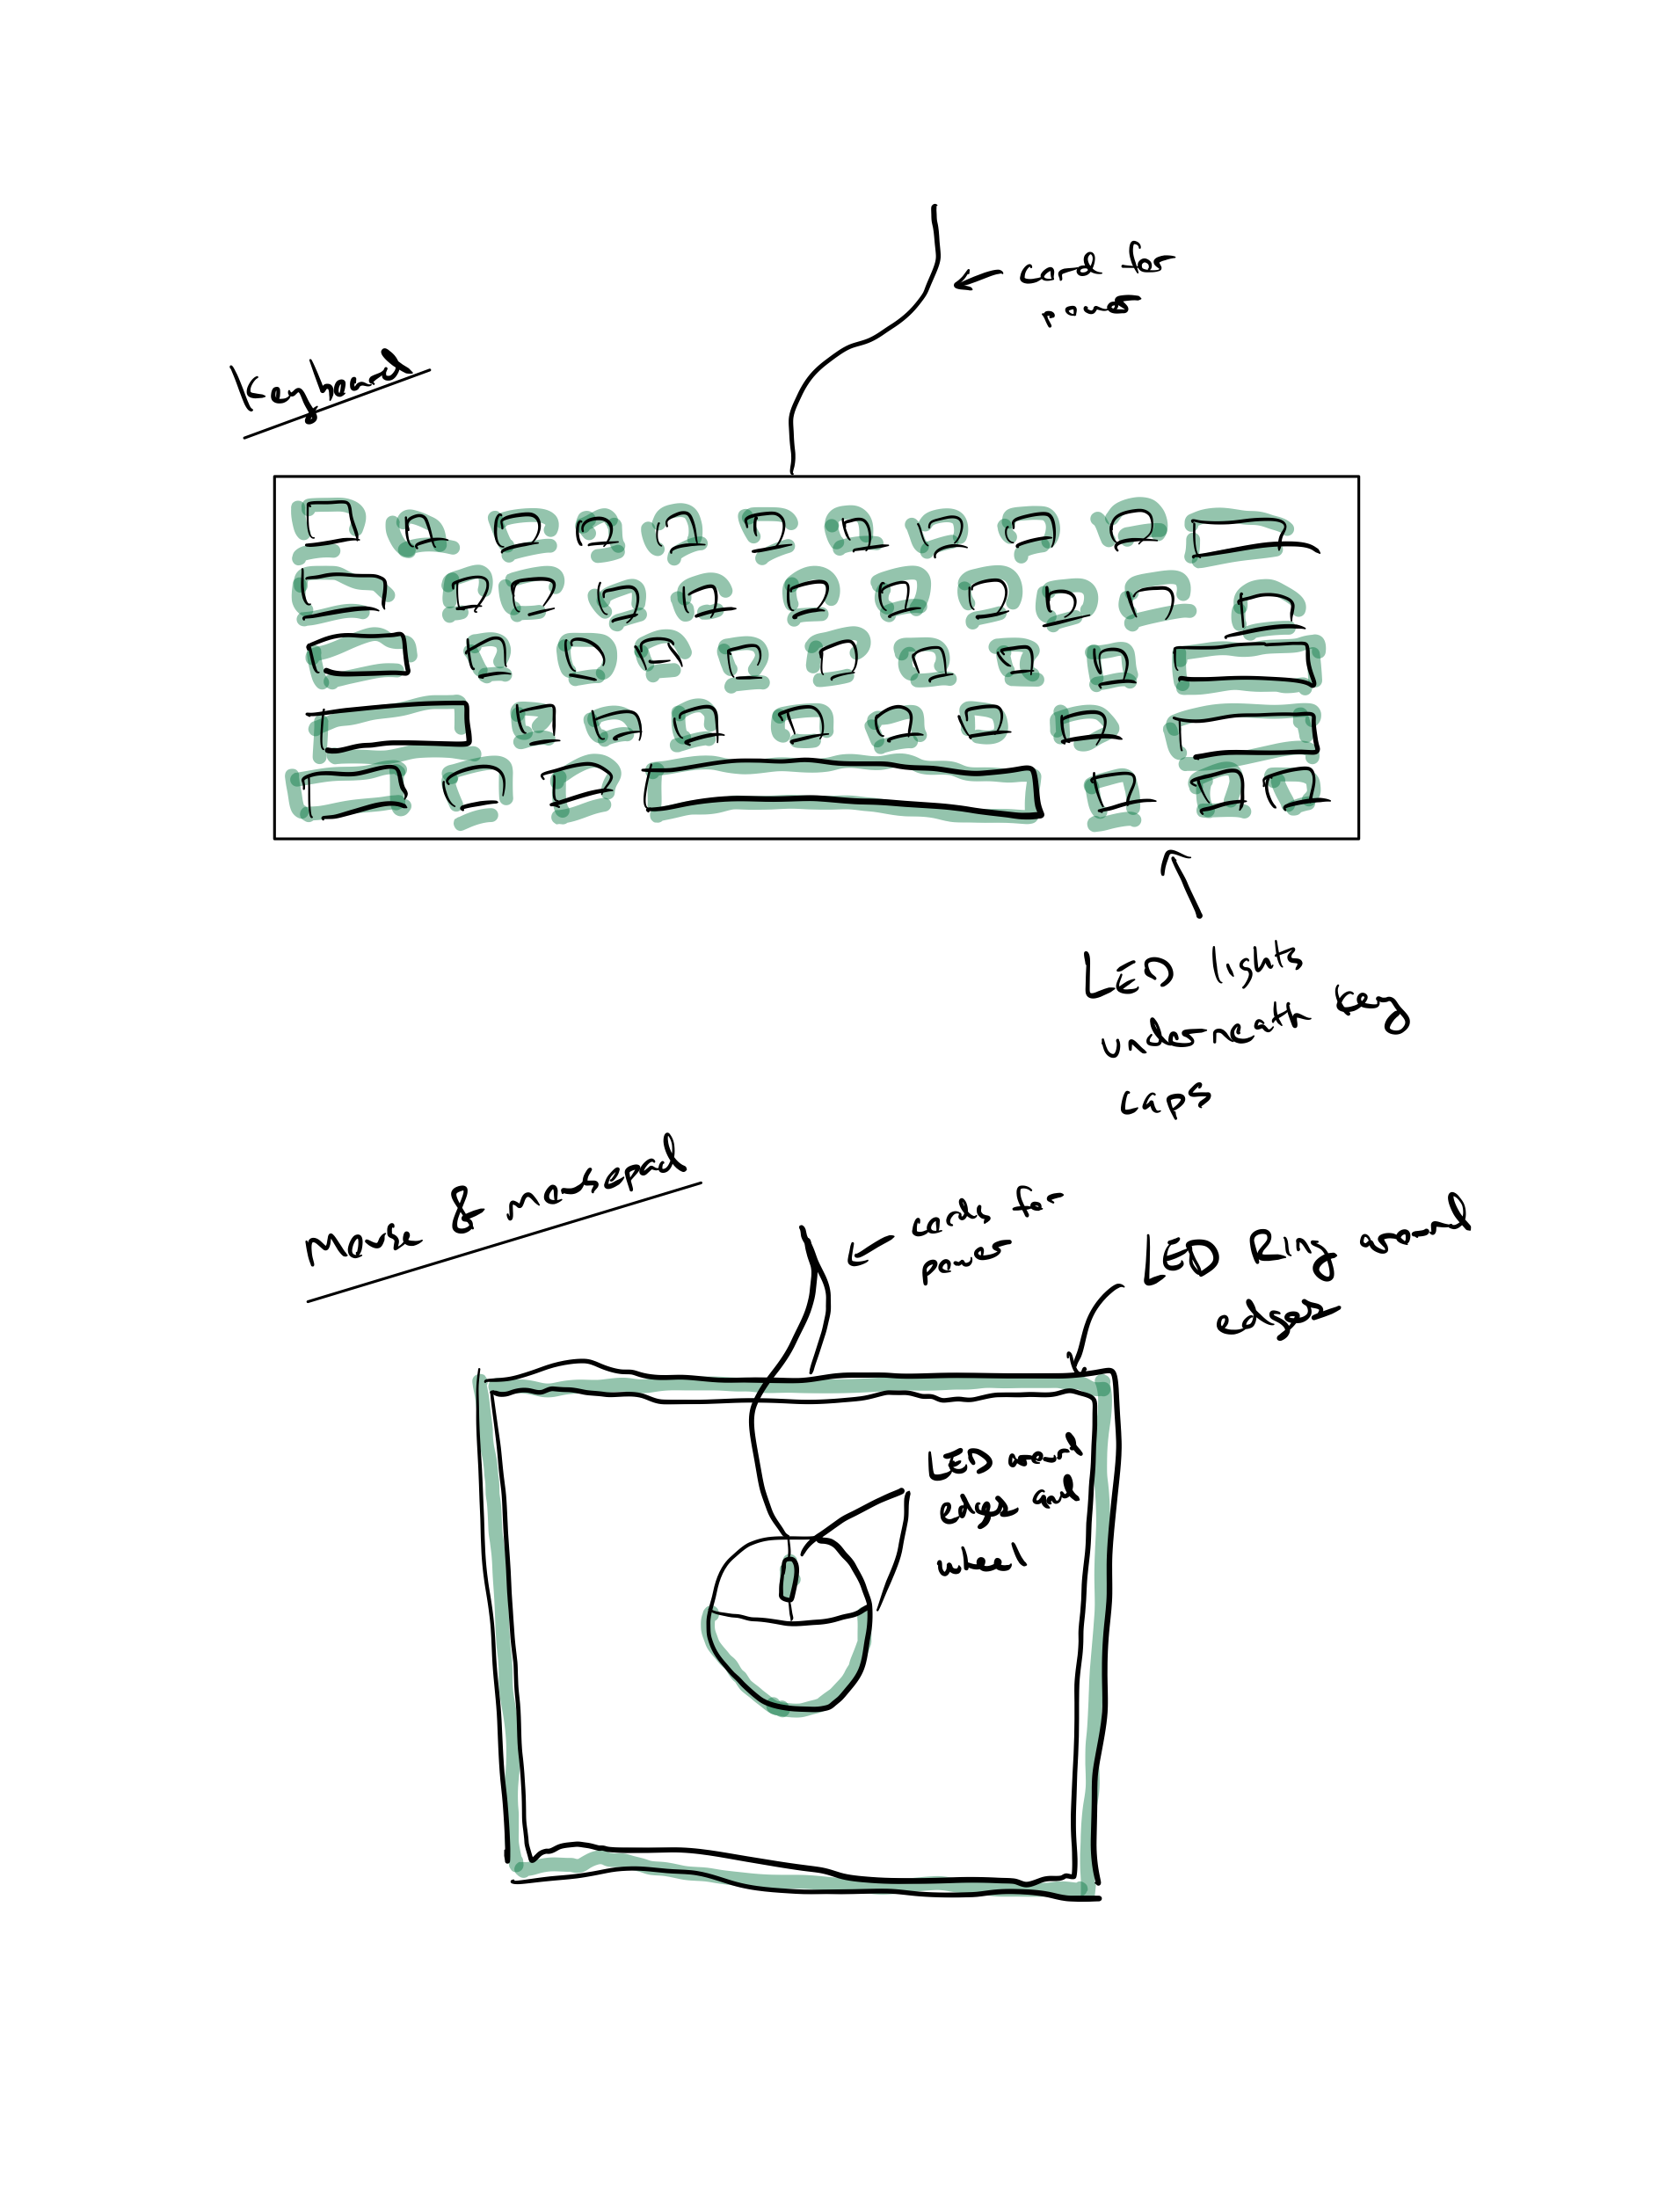 cord for
power
Keyboard
LED lights
underneath key
caps
Mouse & mousepad
cords for
power
LED Ring around
edges
LED around
edges and
wheel